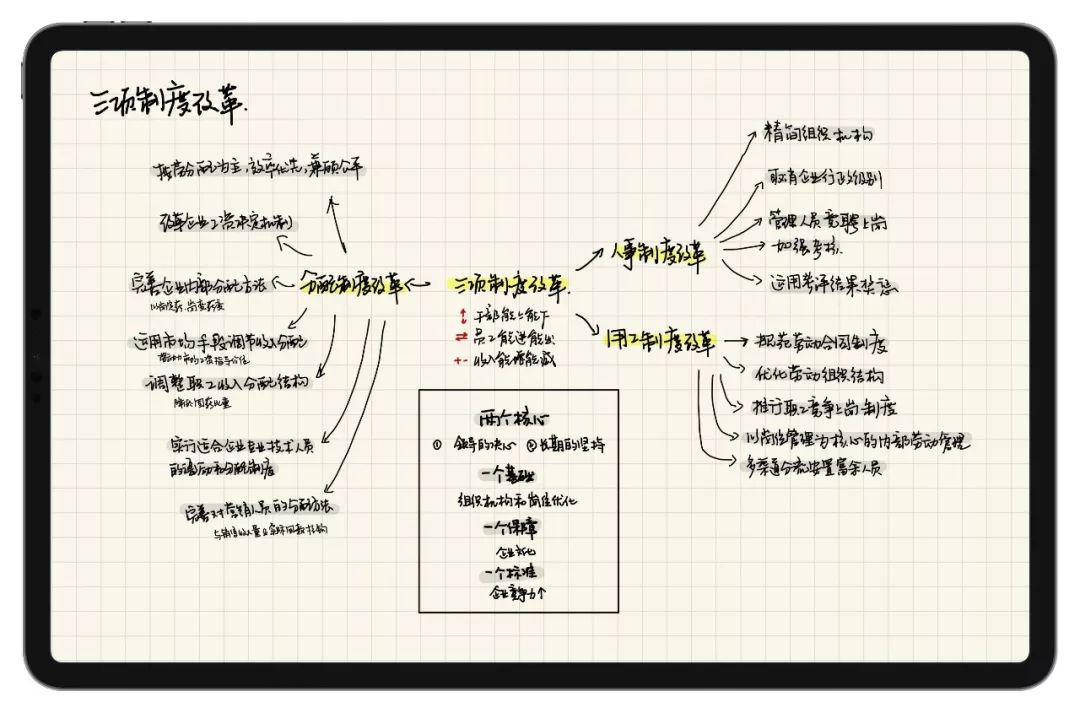 三项制度改革.
按劳分配为主,效率优先,兼顾公平
改革企业工资决定机制
完善企业内部分配方法
以岗定薪,岗变薪变
运用市场手段调节收入分配
劳动力市场工资指导价位
调整职工收入分配结构
降低固薪比重
实行适合企业专业技术人员
的激励和分配制度
完善对营销人员的分配方法
与销售收入量及实际回款挂钩
分配制度改革
三项制度改革.
干部能上能下
员工能进能出
+- 收入能增能减
人事制度改革
精简组织机构
取消企业行政级别
管理人员竞聘上岗
加强考核
运用考评结果奖惩
用工制度改革
规范劳动合同制度
优化劳动组织结构
推行职工竞争上岗制度
以岗位管理为核心的内部劳动管理
多渠道分流安置富余人员
两个核心
① 领导的决心 ②长期的坚持
一个基础
组织机构和岗位优化
一个保障
企业文化
一个标准
企业竞争力个